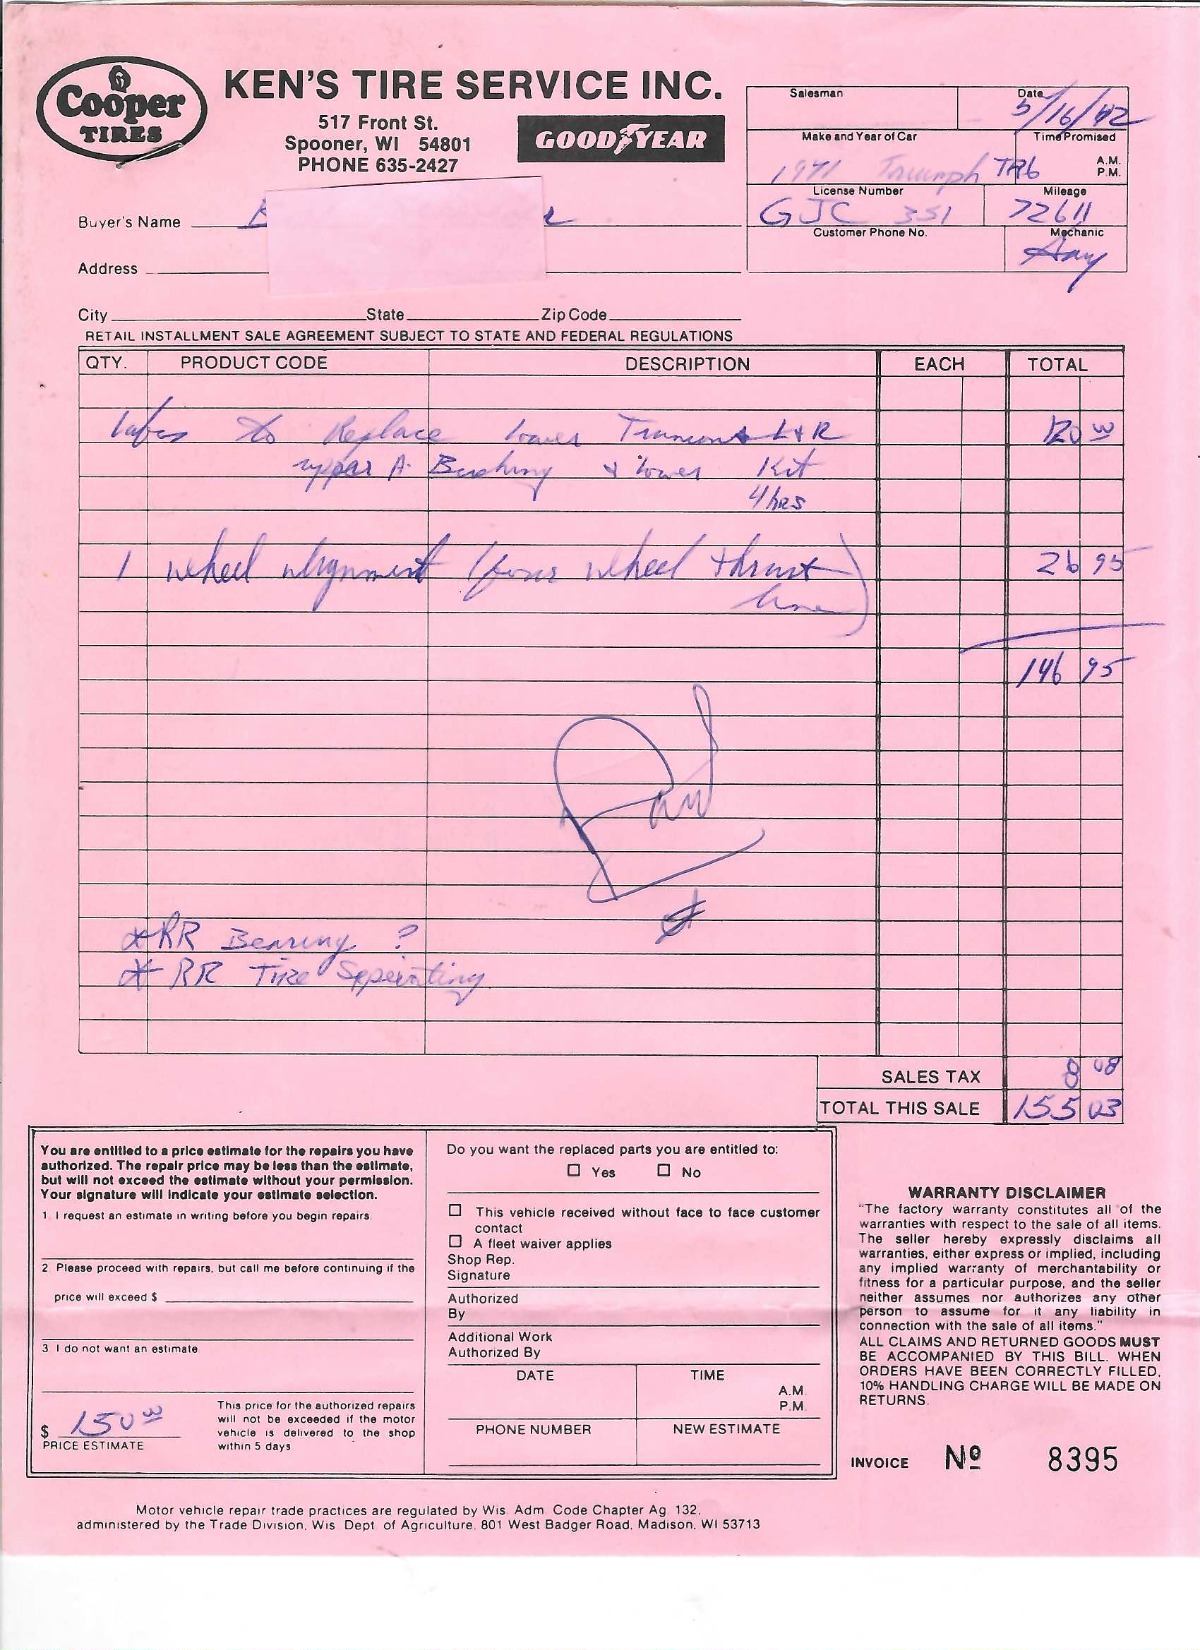 Cooper
TIRES
KEN'S TIRE SERVICE INC.
517 Front St.
Spooner, WI 54801
PHONE 635-2427
GOODYEAR
Salesman
Date
5/16/92
Make and Year of Car
Time Promised
1971 Triumph TR6
A.M.
P.M.
License Number
Mileage
GJC 351
72611
Customer Phone No.
Mechanic
Buyer's Name
Address
City State Zip Code
RETAIL INSTALLMENT SALE AGREEMENT SUBJECT TO STATE AND FEDERAL REGULATIONS
QTY. PRODUCT CODE DESCRIPTION EACH TOTAL
to Replace lower L&R 120 00
upper A. Bushing & lower Kit
4 hrs
1 wheel alignment (four wheel thrust 26 95
line)
146 95
Paid
*RR Bearing ?
*RR Tire
SALES TAX 8 08
TOTAL THIS SALE 155 03
You are entitled to a price estimate for the repairs you have
authorized. The repair price may be less than the estimate,
but will not exceed the estimate without your permission.
Your signature will indicate your estimate selection.
1. I request an estimate in writing before you begin repairs.
2. Please proceed with repairs, but call me before continuing if the
price will exceed $
3. I do not want an estimate.
$ 150 00
PRICE ESTIMATE
This price for the authorized repairs
will not be exceeded if the motor
vehicle is delivered to the shop
within 5 days
Do you want the replaced parts you are entitled to:
☐ Yes ☐ No
☐ This vehicle received without face to face customer
contact
☐ A fleet waiver applies
Shop Rep.
Signature
Authorized
By
Additional Work
Authorized By
DATE TIME
A.M.
P.M.
PHONE NUMBER NEW ESTIMATE
WARRANTY DISCLAIMER
"The factory warranty constitutes all of the
warranties with respect to the sale of all items.
The seller hereby expressly disclaims all
warranties, either express or implied, including
any implied warranty of merchantability or
fitness for a particular purpose, and the seller
neither assumes nor authorizes any other
person to assume for it any liability in
connection with the sale of all items."
ALL CLAIMS AND RETURNED GOODS MUST
BE ACCOMPANIED BY THIS BILL. WHEN
ORDERS HAVE BEEN CORRECTLY FILLED,
10% HANDLING CHARGE WILL BE MADE ON
RETURNS.
INVOICE Nº 8395
Motor vehicle repair trade practices are regulated by Wis. Adm. Code Chapter Ag. 132,
administered by the Trade Division, Wis. Dept. of Agriculture, 801 West Badger Road, Madison, WI 53713